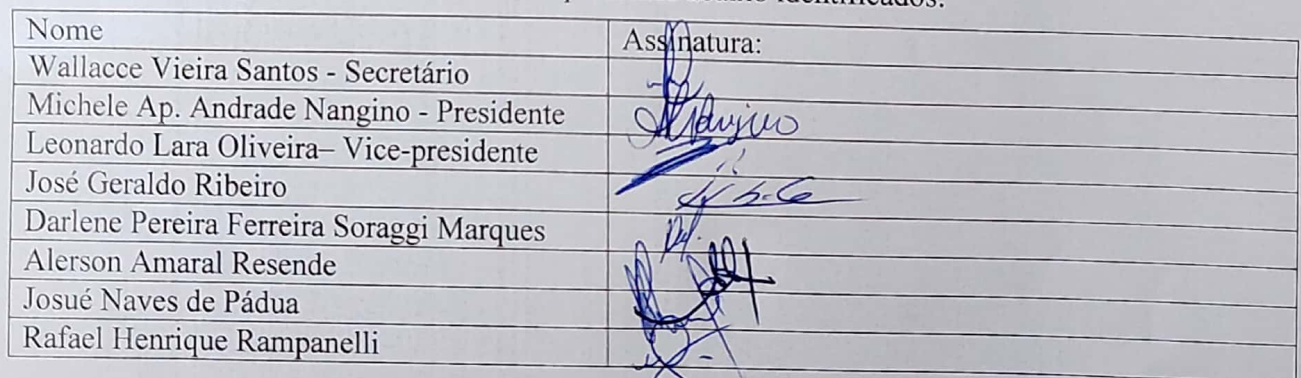 identificados:
Nome Assinatura:
Wallacce Vieira Santos - Secretário
Michele Ap. Andrade Nangino - Presidente
Leonardo Lara Oliveira– Vice-presidente
José Geraldo Ribeiro
Darlene Pereira Ferreira Soraggi Marques
Alerson Amaral Resende
Josué Naves de Pádua
Rafael Henrique Rampanelli